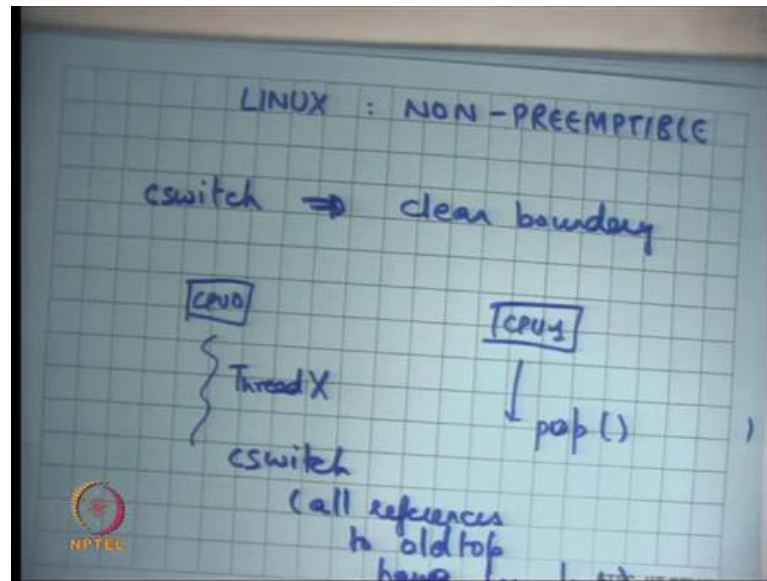 LINUX : NON-PREEMPTIBLE
cswitch ⇒ clean boundary
CPU0
CPU1
Thread X
pop()
cswitch
(all references
to old top
have
NPTEL